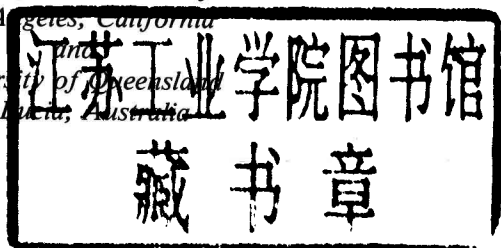 Angeles, California
and
University of Queensland
Lucia, Australia
江苏工业学院图书馆
藏书章